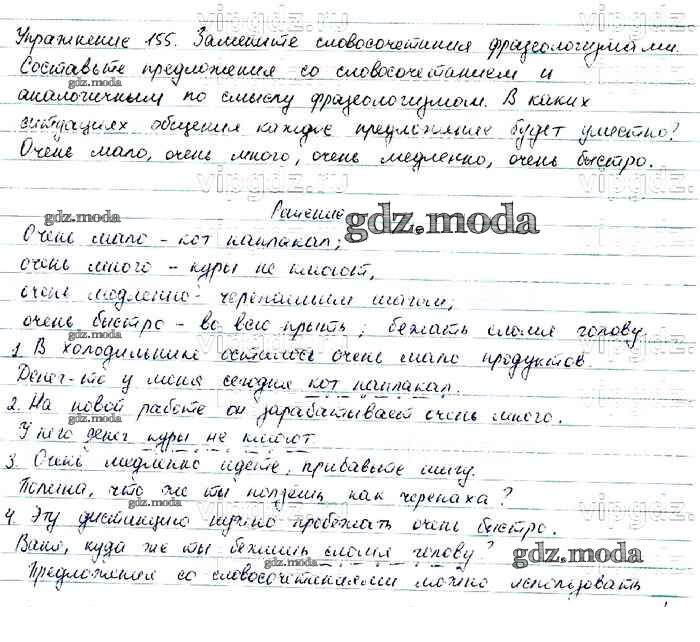 Упражнение 155. Замените словосочетания фразеологизмами.
Составьте предложения со словосочетанием и
аналогичным по смыслу фразеологизмом. В каких
ситуациях общения каждое предложение будет уместно?
Очень мало, очень много, очень медленно, очень быстро.
Решение
gdz.moda
Очень мало - кот наплакал;
очень много - куры не клюют,
очень медленно - черепашьим шагом;
очень быстро - во всю прыть; бежать сломя голову.
1. В холодильнике осталось очень мало продуктов.
Денег-то у меня сегодня кот наплакал.
2. На новой работе он зарабатывает очень много.
У него денег куры не клюют
3. Очень медленно идете, прибавьте шагу.
Полина, что же ты ползешь как черепаха?
4. Эту дистанцию нужно пробежать очень быстро.
Ваня, куда же ты бежишь сломя голову?
gdz.moda
Предложения со словосочетаниями можно использовать